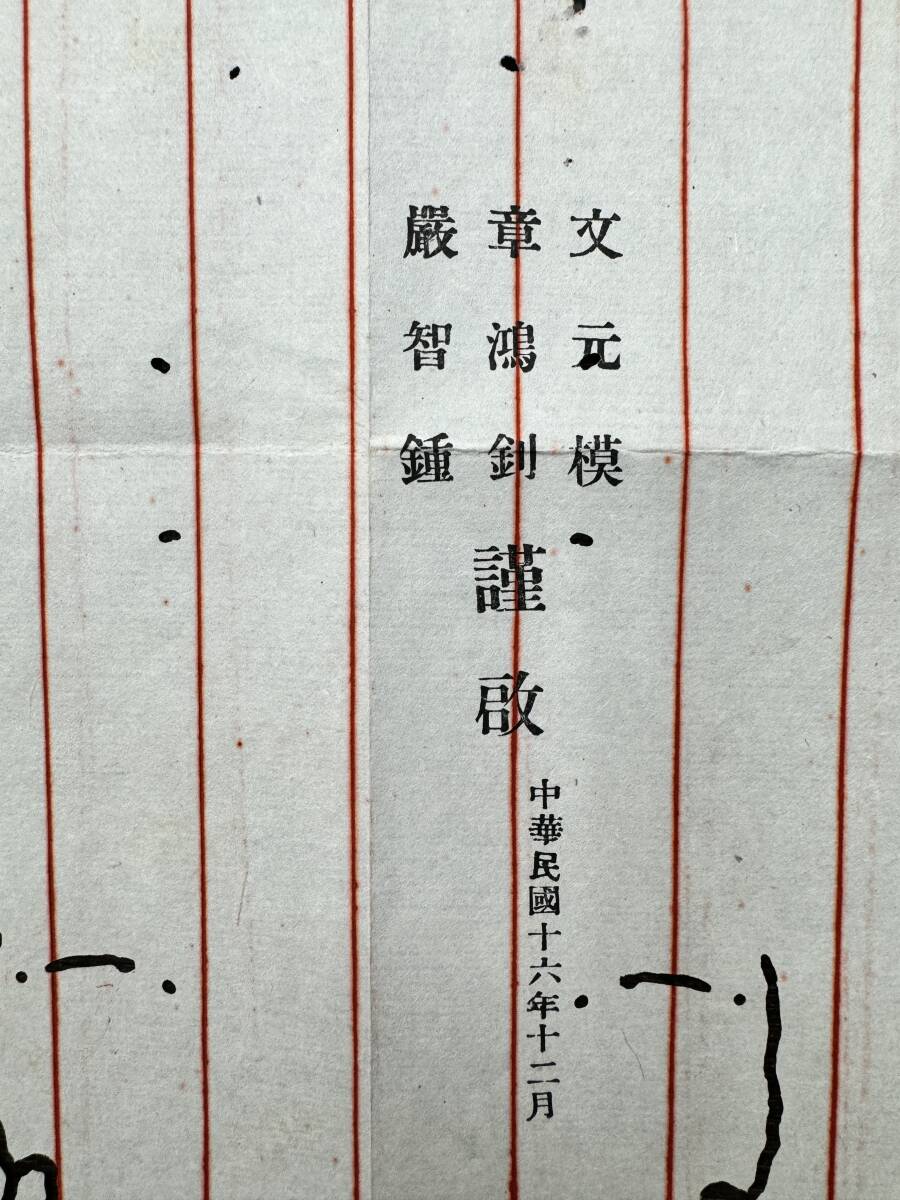 文元模
章鴻釗
嚴智鍾
謹啟
中華民國十六年十二月